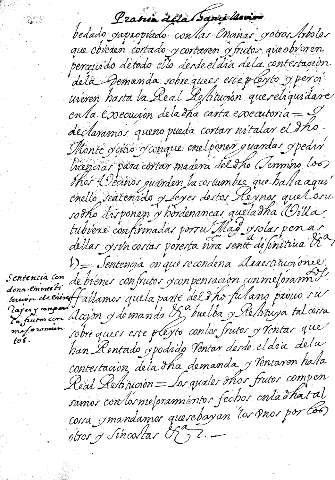 Practica de la Chancilleria
bedado y apropiado con las Montañas, y otros Arboles
que obieren cortado y cortaren y frutos que obieren
percevido de todo ello desde el dia de la contestacion
de la Demanda sobre que es este pleyto y perci
vieren hasta la Real Restitución que se liquidare
en la execucion de la dha carta executoria = Y
declaramos que no pueda cortar ni talar el dho
Monte y sitio y en que en el poner guardas y pedir
licencias para cortar madera del dho Termino los
dhos Vecinos guarden la costumbre que hasta aqui
en ello han tenido y Leyes destos Reynos que lo su
sodho disponen y hordenanças que la dha Villa
tubiere confirmadas por su Magd y so las penas
dellas y sin costas por esta nra sentª definitiva &ª
Sentencia en que se condena a la restitucion
de bienes con frutos y compensacion con mejoramtos
Sentencia con
dena en restitucion
con frutos con
mejoramien
tos.
fallamos que la parte del dho fulano provo su
accion y demanda &ª buelba y Restituya tal cossa
sobre que es este pleyto con los frutos y rentas que
han Rentado y podido rentar desde el dia de la
contestacion de la dha demanda, y rentaren hasta la
Real Restitucion = Los quales dhos frutos compen
samos con los mejoramientos fechos en la dha tal
cossa y mandamos que se bayan los unos por los
otros y sin costas &ª